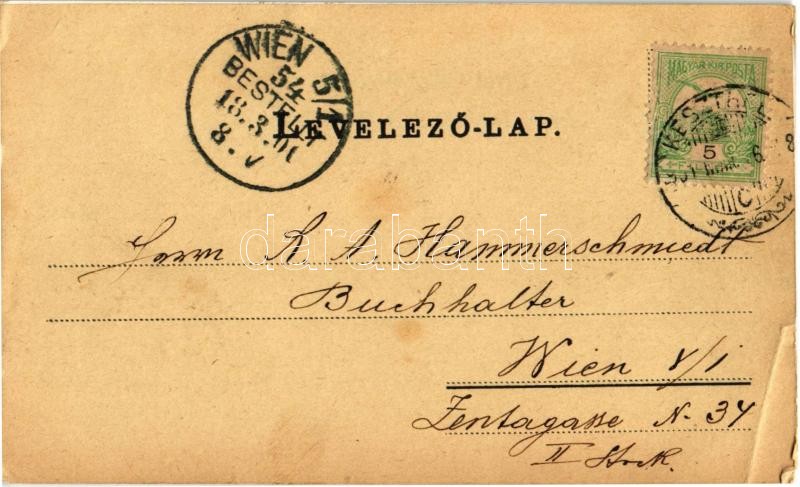 WIEN 5/1
54
BESTELLT
18.3.01
8.V
MAGYAR KIR. POSTA
KESZTHELY
5
LEVELEZŐ-LAP.
darabanth
Herrn K. A. Hammerschmiedt
Buchhalter
Wien V/1
Zentagasse N. 34
II Stock.